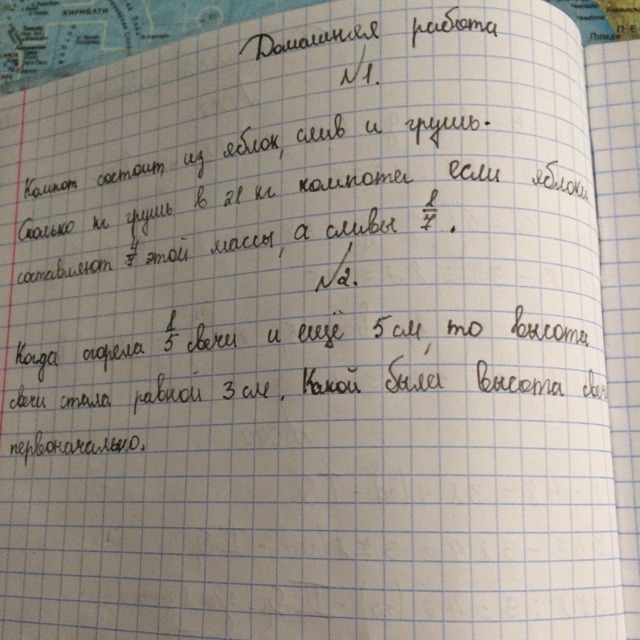 КИРИБАТИ
Домашняя работа
№1.
Компот состоит из яблок, слив и грушь.
Сколько кг грушь в 21 кг компота если яблоки
составляют 4/7 этой массы, а сливы 2/7.
№2.
Когда сгорела 1/5 свечи и ещё 5 см, то высота
свечи стала равной 3 см. Какой была высота
первоначально.